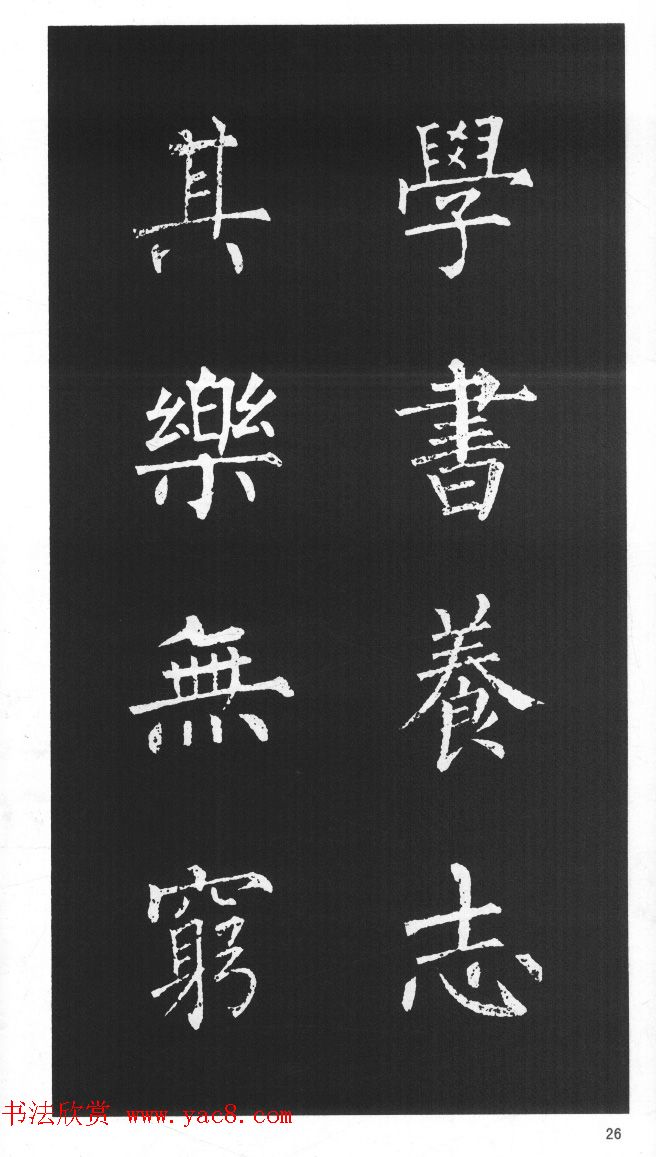 學書養志
其樂無窮
书法欣赏 www.yac8.com
26